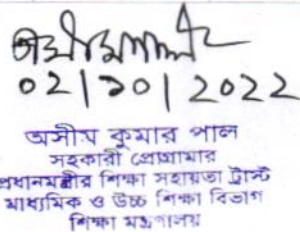 02/10/2022
অসীম কুমার পাল
সহকারী প্রোগ্রামার
প্রধানমন্ত্রীর শিক্ষা সহায়তা ট্রাস্ট
মাধ্যমিক ও উচ্চ শিক্ষা বিভাগ
শিক্ষা মন্ত্রণালয়